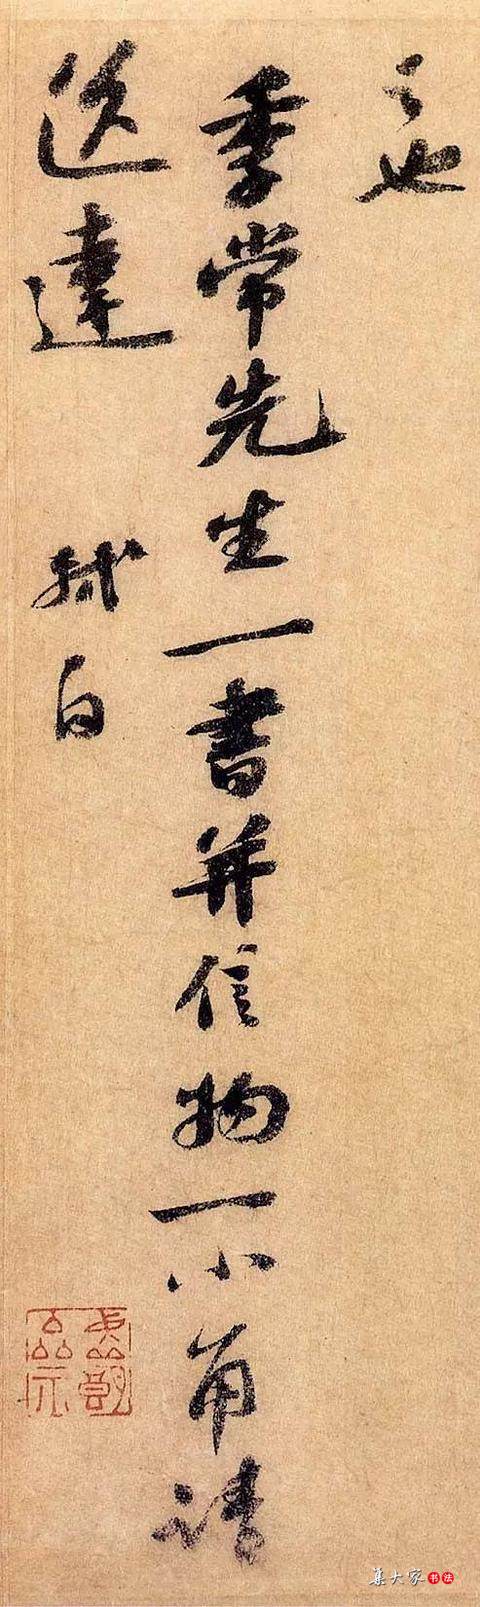 之也
季常先生一書并信物一小角請
送達　軾白
集大家书法